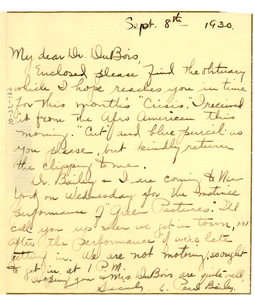 Sept. 8th 1930.
My dear Dr. DuBois,
Enclosed please find the obituary
which I hope reaches you in time
for this month's "Crisis". I received
it from the Afro American this
morning. "Cut" and blue pencil as
you please, but kindly return
the clipping to me.
Dr. Bailey & I are coming to New
York on Wednesday for the matinee
performance of Green Pastures. I'll
call you up when we get in town, or
after the performance if we're late
getting in. We are not motoring, so ought
to get in at 1 P.M.
Hoping you & Mrs DuBois are quite well,
Sincerely,